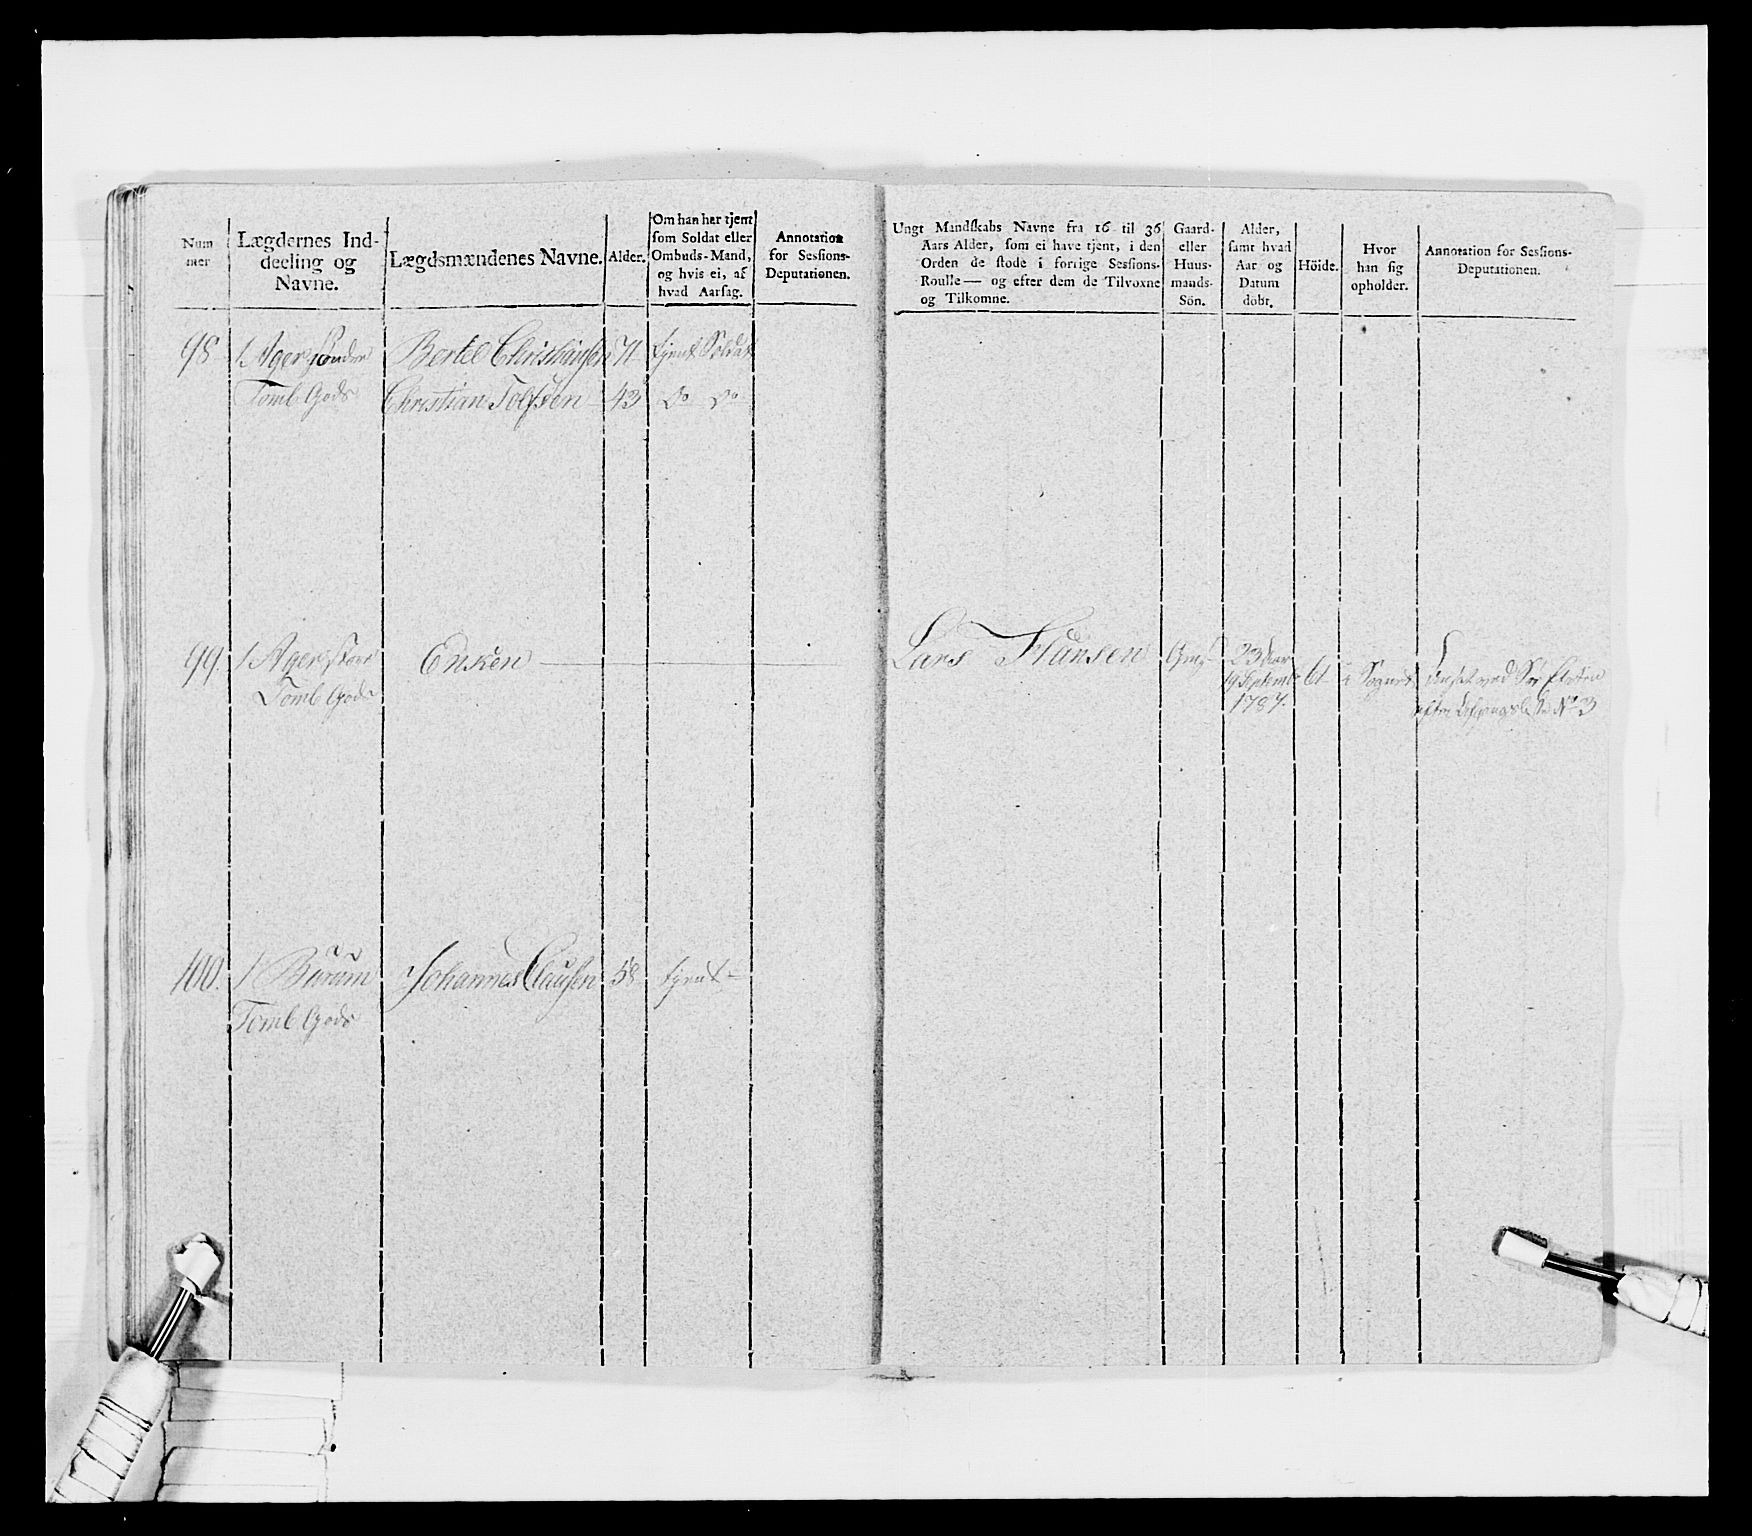 Num
mer
Lægdernes Ind-
deeling og
Navne.
Lægdsmændenes Navne.
Alder.
Om han her tjent
som Soldat eller
Ombuds-Mand,
og hvis ei, af
hvad Aarsag.
Annotation
for Sessions-
Deputationen.
98
1 Ager søndre
Tomb Gods
Bertel Christiansen
71
tjent Soldat
Christian Tolfsen
43
Do Do
99.
1 Ager store
Tomb Gods
Enken
100.
1 Burum
Tomb Gods
Johannes Clausen
58
tjent
Ungt Mandskabs Navne fra 16 til 36
Aars Alder, som ei have tjent, i den
Orden de stode i forrige Sessions-
Roulle — og efter dem de Tilvoxne
og Tilkomne.
Gaard-
eller
Huus-
mands-
Sön.
Alder,
samt hvad
Aar og
Datum
döbt.
Höide.
Hvor
han sig
opholder.
Annotation for Sessions-
Deputationen.
Lars Hansen
23 Aar
19 Septembr
1787.
61
i Sognet
ved Søe Etaten
efter Afgangsliste No 3